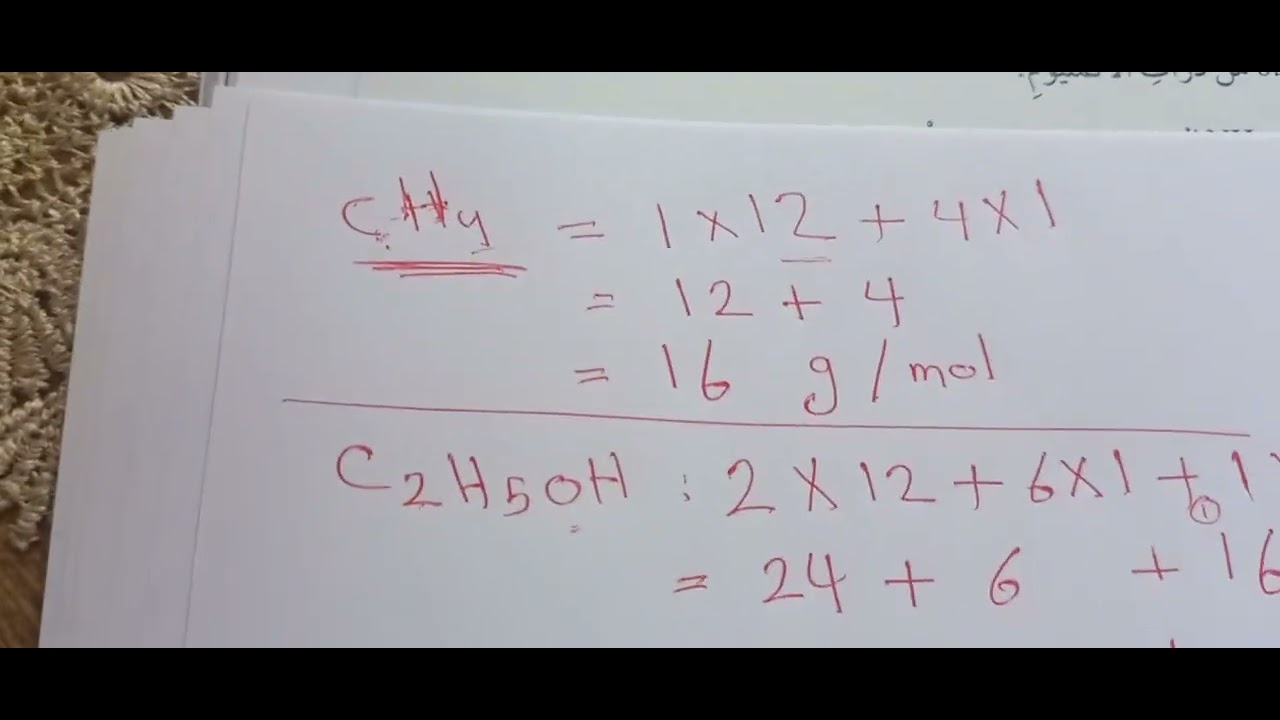 CH4 = 1 × 12 + 4 × 1
= 12 + 4
= 16 g / mol
C2H5OH : 2 × 12 + 6 × 1 + 1
= 24 + 6 + 16